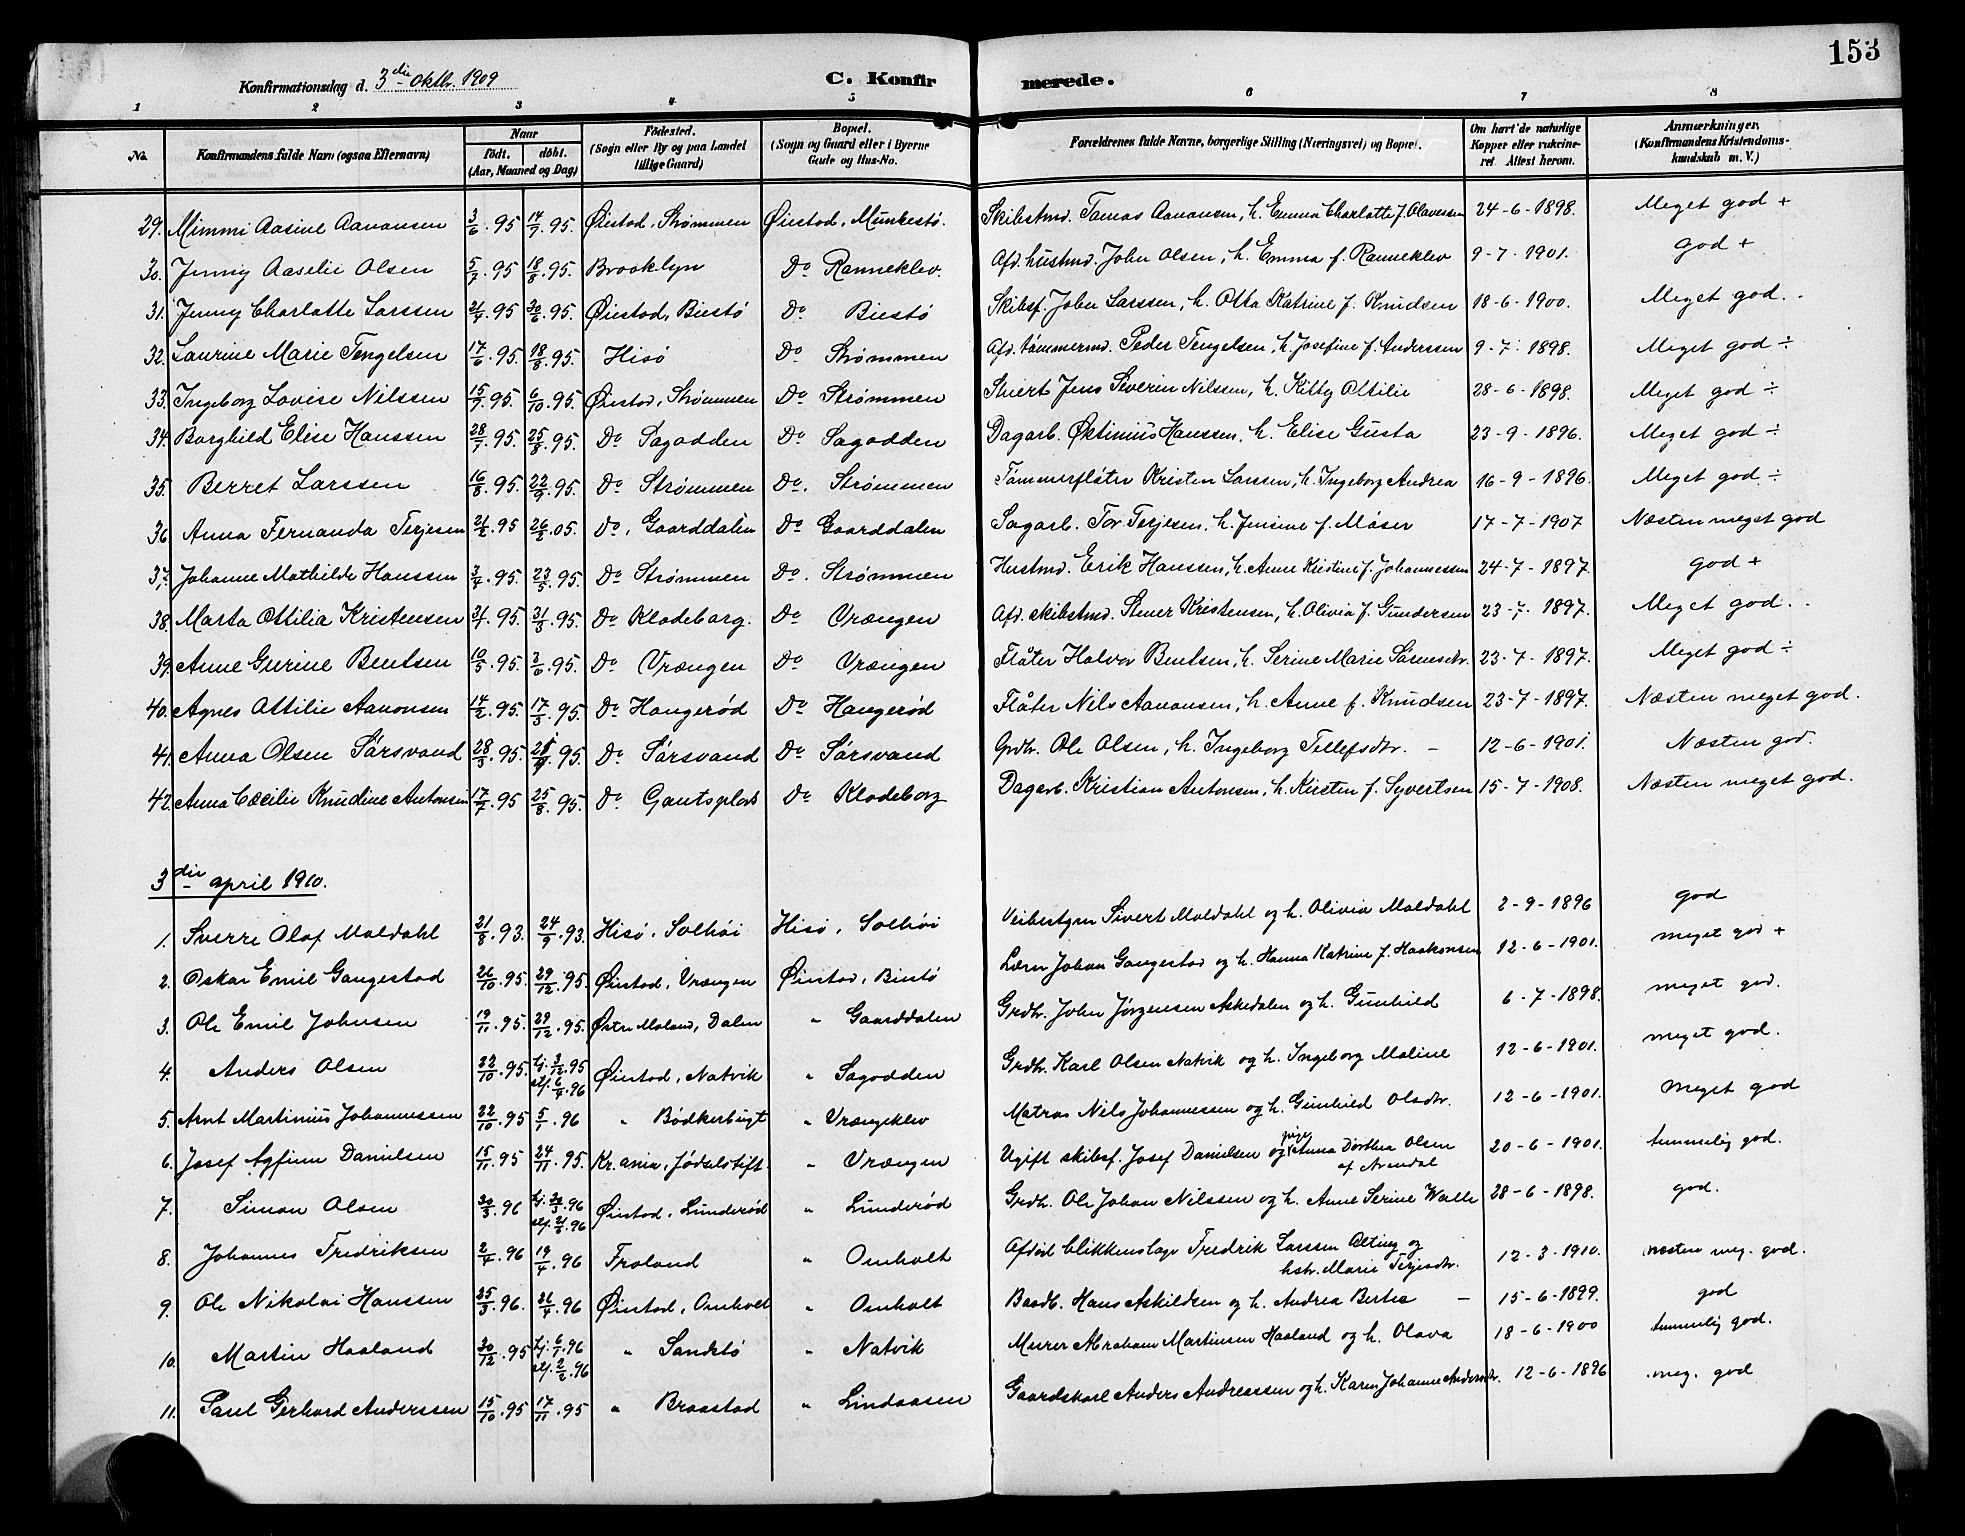 153
Konfirmationsdag d. 3die Oktbr. 1909
C. Konfirmerede.
1 2 3 4 5 6 7 8
No. Konfirmandens fulde Navn (ogsaa Efternavn) Naar født. døbt. (Aar, Maaned og Dag) Fødested. (Sogn eller By og paa Landet tillige Gaard) Bopæl. (Sogn og Gaard eller i Byerne Gade og Hus-No. Forældrenes fulde Navne, borgerlige Stilling (Næringsvei) og Bopæl. Om havt de naturlige Kopper eller vaccineret. Attest herom. Anmærkninger. (Konfirmandens Kristendomskundskab m. V.)
29. Mimmi Aasine Aavansen 3/6.95 14/7.95. Øiestad, Strømmen Øiestad, Munkestø. Skibstmd. Tomas Aavansen, h. Emma Charlotte f. Olavessen 24-6-1898. Meget god +
30. Jenny Aaselie Olsen 5/7.95 18/8.95. Brooklyn Do Ranneklev. Afd. hustmd. John Olsen, h. Emma f. Ranneklev 9-7-1901. god +
31. Jenny Charlotte Larssen 21/4.95 30/6.95. Øiestad, Biestø Do Biestø Skibsf. John Larssen, h. Otta Katrine f. Knudsen 18-6-1900. Meget god.
32. Laurine Marie Tengelsen 17/6.95. 18/8.95. Hisø Do Strømmen Afd. tømmermd. Peder Tengelsen, h. Josefine f. Anderssen 9-7-1898. Meget god ÷
33. Ingeborg Lovise Nilssen 15/7.95. 6/10.95. Øiestad, Strømmen Do Strømmen Stuert Jens Severin Nilssen, h. Kitty Ottilie 28-6-1898. Meget god ÷
34. Borghild Elise Hanssen 28/7.95. 25/8.95. Do Sagodden Do Sagodden Dagarb. Øktinius Hanssen, h. Elise Gusta 23-9-1896. Meget god ÷
35. Berret Larssen 16/8.95. 22/9.95. Do Strømmen Do. Strømmen Tømmerfløter Kristen Larssen, h. Ingeborg Andrea 16-9-1896. Meget god ÷
36. Anna Fernanda Terjesen 21/2.95 26/2.05. Do, Gaarddalen Do Gaarddalen Sagarb. Tor Terjesen, h. Jensine f. Moser 17-7-1907 Næsten meget god
37. Johanne Mathilde Hanssen 3/4.95. 23/5.95. Do Strømmen Do. Strømmen Hustmd. Erik Hanssen, h. Anne Kristine f. Johannessen 24-7-1897. god +
38. Marta Ottilia Kristensen 31/1.95. 31/3.95. Do Klodeborg. Do Vrængen Afd. skibstmd. Stener Kristensen, h. Olivia f. Gundersen 23-7-1897. Meget god.
39. Anne Gurine Bentsen 10/5.95. 3/6.95. Do Vrængen Do Vrængen Fløter Halvor Bentsen, h. Serine Marie Sørensdtr. 23-7-1897. Meget god ÷
40. Agnes Ottilie Aavonsen 14/2.95. 17/3.95. Do Haugerød Do Haugerød Fløter Nils Aavansen, h. Anne f. Knudsen 23-7-1897. Næsten meget god.
41. Anna Olsen Sørsvand 28/3.95. .95 Do Sørsvand Do Sørsvand Grdbr. Ole Olsen, h. Ingeborg Tellefsdtr. - 12-6-1901. Næsten god.
42. Anna Cæcilie Knudine Antonsen 17/7.95 25/8.95. Do Gautsplads Do Klodeborg Dagarb. Kristian Antonsen, h. Kirsten f. Syvertsen 15-7-1908. Næsten meget god.
3die april 1910.
1. Sverre Olaf Moldahl 21/8.93. 24/9.93. Hisø, Solhøi Hisø, Solhøi Veibestyrer Sivert Moldahl og h. Olivia Moldahl 2-9-1896 god
2. Oskar Emil Gangestad 26/10.95. 29/12.95. Øiestad, Vrængen Øiestad, Biestø Lærer Johan Gangestad og h. Hanna Katrine f. Haakonsen 12-6-1901. meget god +
3. Ole Emil Johnsen 19/11.95. 29/12.95. Østre Moland, Dalen " Gaarddalen Grdbr. John Jørgensen Askedalen og h. Gunhild 6-7-1898. meget god.
4. Anders Olsen 22/10.95. hj. 3/12.95 st. 6/4.96 Øiestad, Natvik " Sagodden Grdbr. Karl Olsen Natvik og h. Ingeborg Maline 12-6-1901. meget god.
5. Arnt Martinius Johannessen 22/10.95 5/1.96 " Bødkerbugt " Vrængeklev Matros Nils Johannessen og h. Gunhild Olsdtr. 12-6-1901. Meget god
6. Josef Agfinn Danielsen 15/11.95 24/11.95. Kr.ania, Fødselstift. " Vrængen Ugift skibsf. Josef Danielsen og pige Anna Dorthea Olsen af Arendal 20-6-1901. temmelig god.
7. Simon Olsen 20/3.96 hj. 30/3.96 st. .96 Øiestad, Lunderød " Lunderød Grdbr. Ole Johan Nilssen og h. Anne Serine Walle 28-6-1898. god.
8. Johannes Fredriksen 2/4.96 19/4.96 Froland " Omholt Afdød blikkenslager Fredrik Larssen Alting og hstr. Marie Terjesdtr. 12-3-1910. næsten meg. god.
9. Ole Nikolai Hanssen 25/3.96. 26/4.96 Øiestad, Omholt " Omholt Baadb. Hans Askildsen og h. Andrea Bertie - 15-6-1899. god
10. Martin Haaland 30/12.95 hj. 6/1.96 st. 2/2.96 " Sandstø " Natvik Murer Abraham Martinsen Haaland og h. Olava 18-6-1900 temmelig god.
11. Paul Gerhard Anderssen 15/10.95 17/11.95 " Braastad " Lindaasen Gaardskarl Anders Andreassen og h. Karen Johanne Andersdtr. 12-6-1896 meg. god